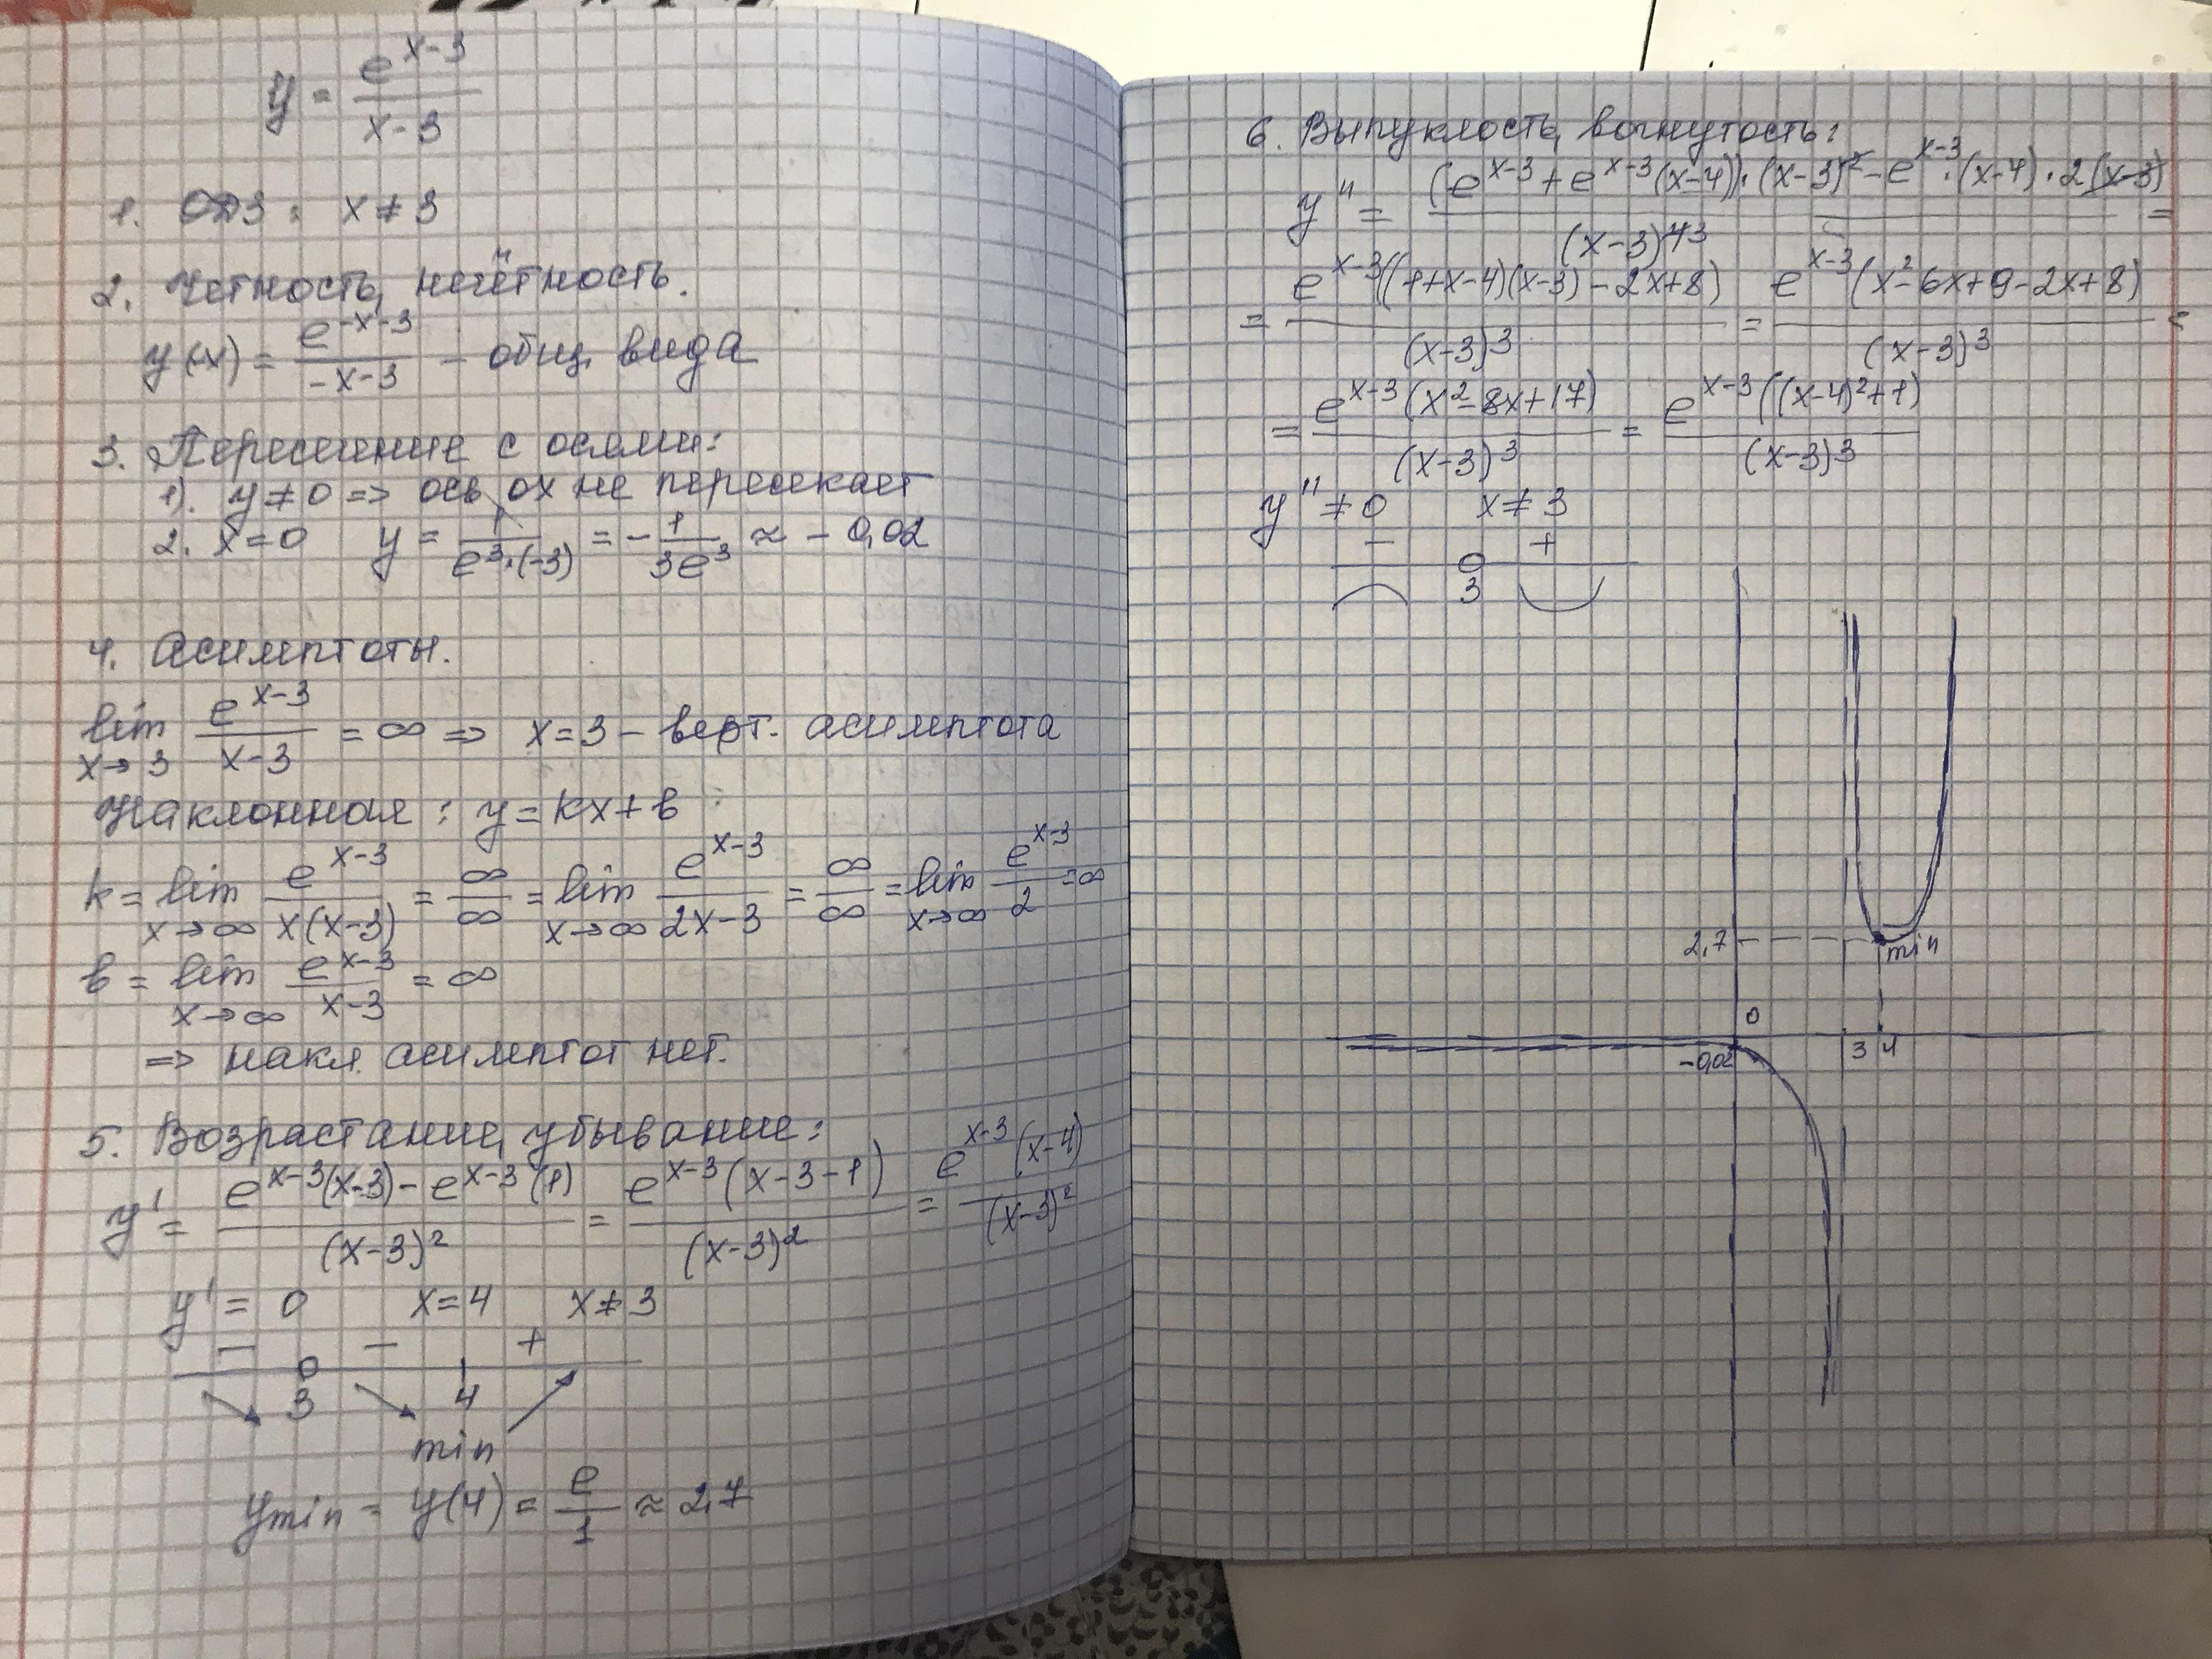 y = e^(x-3) / (x-3)
1. ОДЗ: x ≠ 3
2. Четность, нечётность.
y(-x) = e^(-x-3) / (-x-3) – общ. вида
3. Пересечение с осями:
1). y ≠ 0 => ось ox не пересекает
2. x = 0 y = 1 / (e^3·(-3)) = - 1 / (3e^3) ≈ - 0,02
4. Асимптоты.
lim x→3 e^(x-3) / (x-3) = ∞ => x = 3 – верт. асимптота
Наклонная: y = kx + b
k = lim x→∞ e^(x-3) / (x(x-3)) = ∞/∞ = lim x→∞ e^(x-3) / (2x-3) = ∞/∞ = lim x→∞ e^(x-3) / 2 = ∞
b = lim x→∞ e^(x-3) / (x-3) = ∞
=> накл. асимптот нет.
5. Возрастание, убывание:
y' = (e^(x-3)(x-3) - e^(x-3)(1)) / (x-3)^2 = e^(x-3)(x-3-1) / (x-3)^2 = e^(x-3)·(x-4) / (x-3)^2
y' = 0 x = 4 x ≠ 3
– – +
3 4
min
y min = y(4) = e/1 ≈ 2,7
6. Выпуклость, вогнутость:
y'' = ((e^(x-3) + e^(x-3)(x-4))·(x-3)^2 - e^(x-3)·(x-4)·2(x-3)) / (x-3)^4 3 =
= e^(x-3)((1+x-4)(x-3) - 2x+8) / (x-3)^3 = e^(x-3)(x^2-6x+9-2x+8) / (x-3)^3 =
= e^(x-3)(x^2-8x+17) / (x-3)^3 = e^(x-3)((x-4)^2+1) / (x-3)^3
y'' ≠ 0 x ≠ 3
– +
3
2,7 min
0
-0,02 3 4